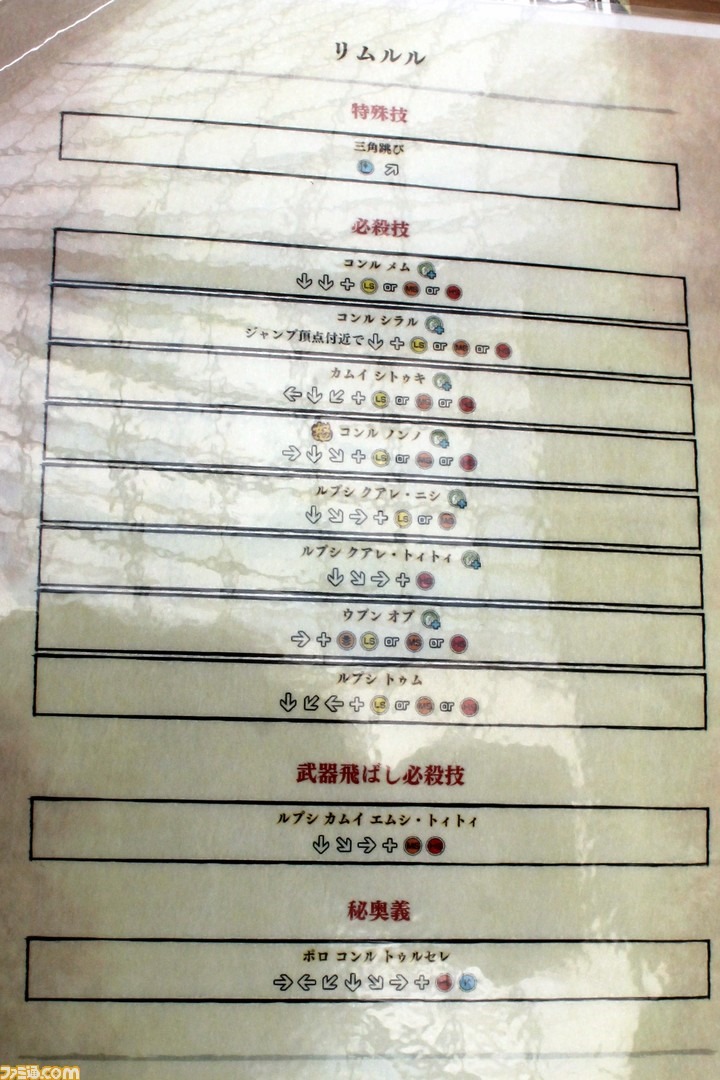 リムルル
特殊技
三角跳び
必殺技
コンル メム
LS or MS or HS
コンル シラル
ジャンプ頂点付近で ↓ + LS or MS or HS
カムイ シトゥキ
LS or MS or HS
コンル ノンノ
LS or MS or HS
ルプシ クアレ・ニシ
LS or MS
ルプシ クアレ・トィトィ
HS
ウプン オプ
LS or MS or HS
ルプシ トゥム
LS or MS or HS
武器飛ばし必殺技
ルプシ カムイ エムシ・トィトィ
MS HS
秘奥義
ポロ コンル トゥルセレ
ファミ通.com